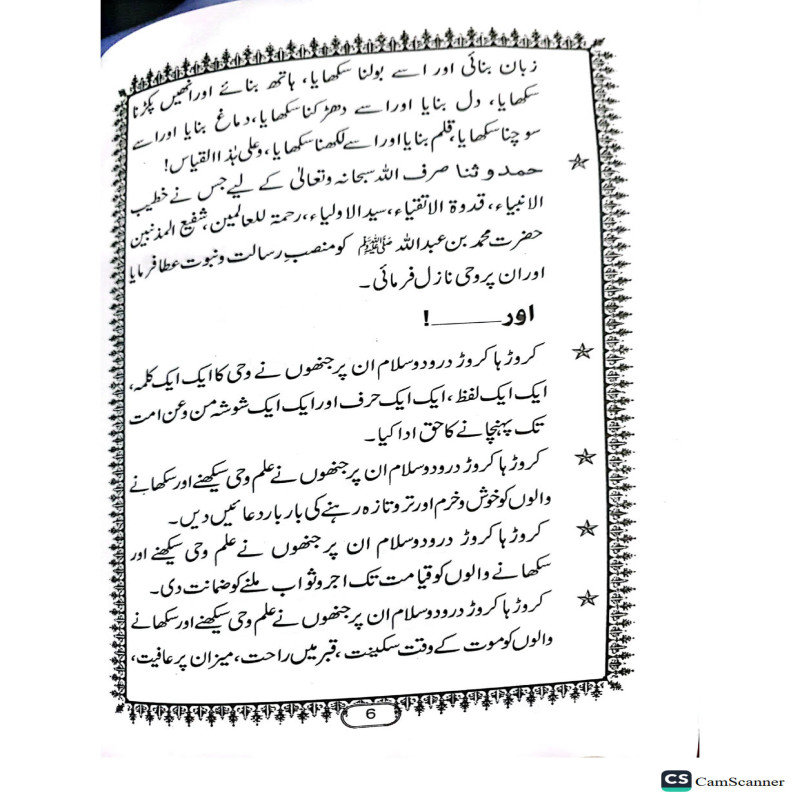 زبان بنائی اور اسے بولنا سکھایا، ہاتھ بنائے اور انھیں پکڑنا
سکھایا، دل بنایا اور اسے دھڑکنا سکھایا، دماغ بنایا اور اسے
سوچنا سکھایا، قلم بنایا اور اسے لکھنا سکھایا، وعلیٰ ہٰذا القیاس!
☆ حمد و ثنا صرف اللہ سبحانہ وتعالیٰ کے لیے جس نے خطیب
الانبیاء، قدوۃ الاتقیاء، سید الاولیاء، رحمۃ للعالمین، شفیع المذنبین
حضرت محمد بن عبداللہ ﷺ کو منصبِ رسالت و نبوت عطا فرمایا
اور ان پر وحی نازل فرمائی۔
اور ـــــــــ!
☆ کروڑ ہا کروڑ درود و سلام ان پر جنھوں نے وحی کا ایک ایک کلمہ،
ایک ایک لفظ، ایک ایک حرف اور ایک ایک شوشہ من و عن امت
تک پہنچانے کا حق ادا کیا۔
☆ کروڑ ہا کروڑ درود و سلام ان پر جنھوں نے علم وحی سیکھنے اور سکھانے
والوں کو خوش و خرم اور تر و تازہ رہنے کی بار بار دعائیں دیں۔
☆ کروڑ ہا کروڑ درود و سلام ان پر جنھوں نے علم وحی سیکھنے اور
سکھانے والوں کو قیامت تک اجر و ثواب ملنے کو ضمانت دی۔
☆ کروڑ ہا کروڑ درود و سلام ان پر جنھوں نے علم وحی سیکھنے اور سکھانے
والوں کو موت کے وقت سکینت، قبر میں راحت، میزان پر عافیت،
6
CS CamScanner